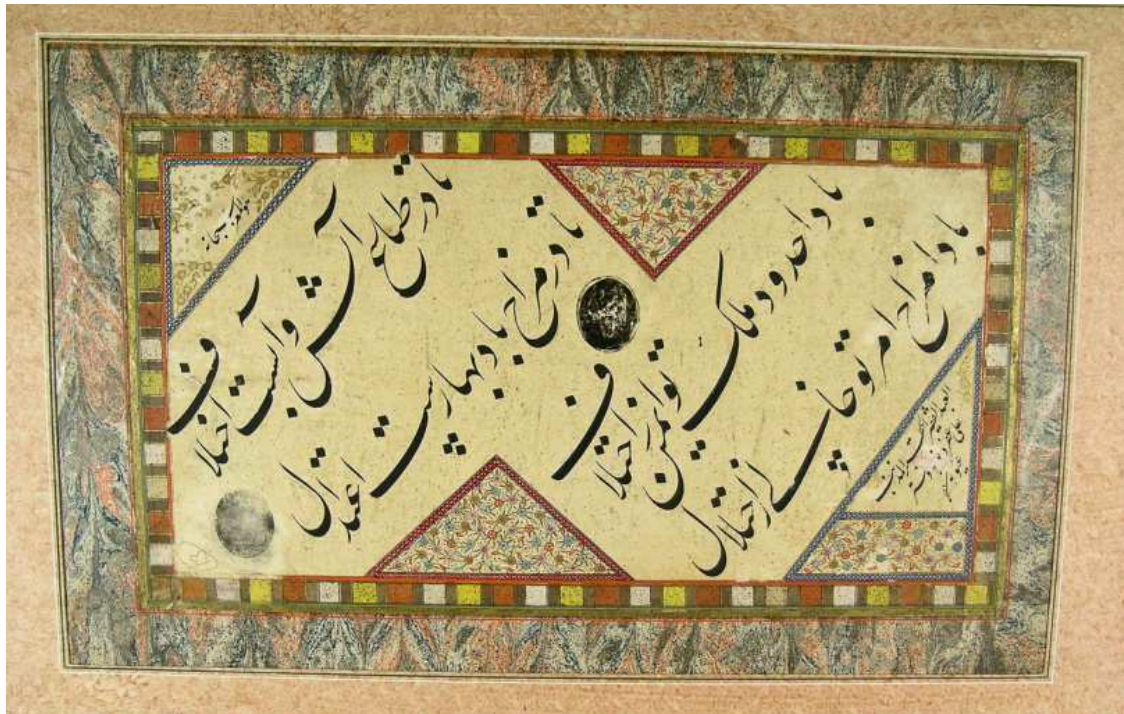 تا در طبایع آتش و آبست اختلاف
تا در مزاج باد بهارست اعتدال
بادا حدود ملک تو ایمن ز اختلاف
بادا مزاج امر تو خالی ز اختلال
العبد